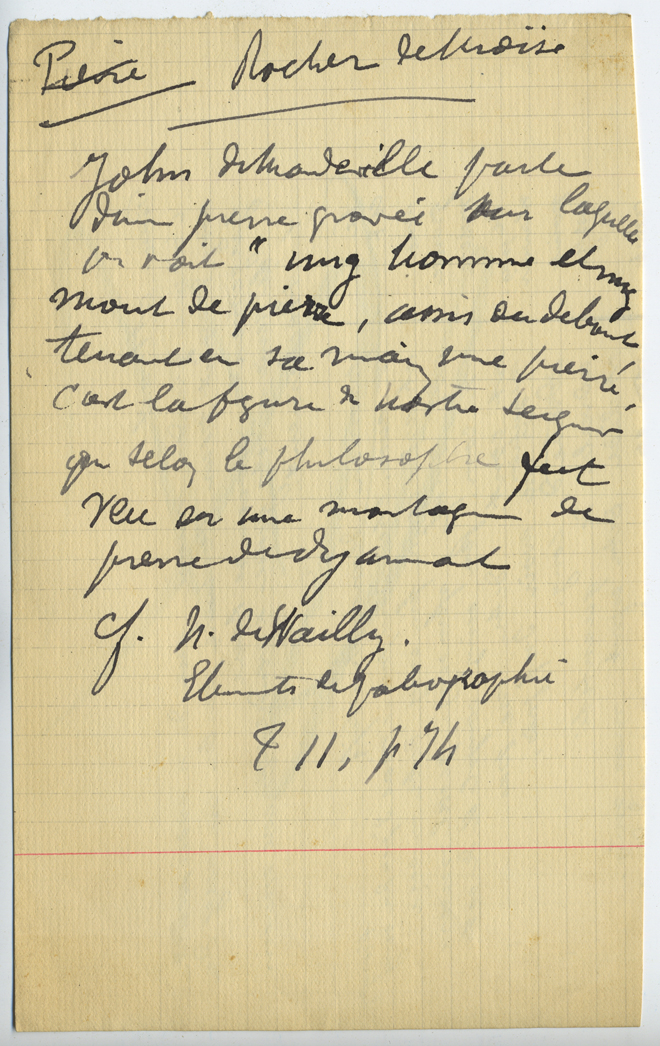 Pierre Rocher de Moïse
John de Mandeville parle
d'une pierre gravée sur laquelle
on voit " ung homme et ung
mont de pierre, assis ou debout
tenant en sa main une pierre,
c'est la figure de nostre Seigneur
qui selon le philosophe fut
veu sur une montagne de
pierre de dyamant
cf. N. de Wailly.
Elements de paleographie
T II, p 74